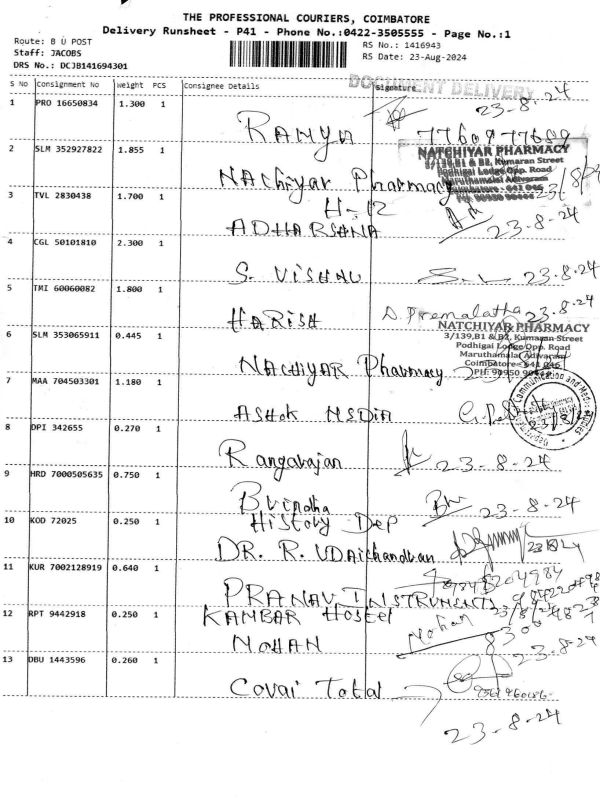 THE PROFESSIONAL COURIERS, COIMBATORE
Delivery Runsheet - P41 - Phone No.:0422-3505555 - Page No.:1
Route: B U POST
RS No.: 1416943
Staff: JACOBS
RS Date: 23-Aug-2024
DRS No.: DCJB141694301
DOCUMENT DELIVERY
S No Consignment No Weight PCS Consignee Details Signature
1 PRO 16650834 1.300 1
23-8-24
RAMYA
2 SLM 352927822 1.855 1
NATCHIYAR PHARMACY
3/139,B1 & B2, Kumaran Street
Podhigai Lodge Opp. Road
Maruthamalai Adivaram
Coimbatore - 641 046
NAchiyar Pharmacy
3 TVL 2830438 1.700 1
H-12
ADHARSANA
23-8-24
4 CGL 50101810 2.300 1
S. VISHNU
23-8-24
5 TMI 60060082 1.800 1
HARISH
D. Premalatha 23-8-24
NATCHIYAR PHARMACY
3/139,B1 & B2, Kumaran Street
Podhigai Lodge Opp. Road
Maruthamalai Adivaram
Coimbatore - 641 046
6 SLM 353065911 0.445 1
NACHIYAR Pharmacy
7 MAA 704503301 1.180 1
8 DPI 342655 0.270 1
Rangarajan
23-8-24
9 HRD 7000505635 0.750 1
Brindha
23-8-24
History Dep
10 KOD 72025 0.250 1
DR. R. UDAichandran
11 KUR 7002128919 0.640 1
PRANAV INSTRUMENTS
KAMBAR Hostel
12 RPT 9442918 0.250 1
MOHAN
Mohan
23-8-24
13 DBU 1443596 0.260 1
Covai Total
23-8-24